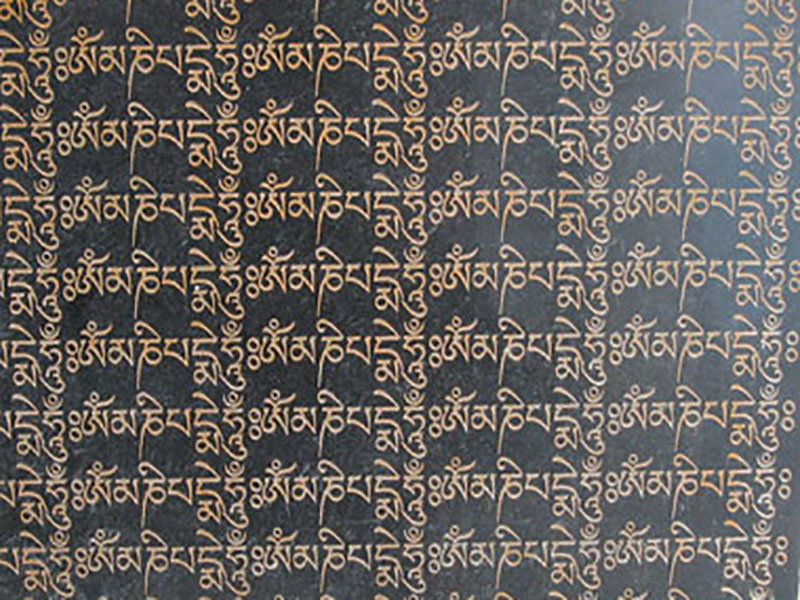 དྨེཧཱུྃ༔ཨོཾམཎིཔདྨེཧཱུྃ༔ཨོཾམཎིཔདྨེཧཱུྃ༔ཨོཾམཎིཔདྨེཧཱུྃ༔ཨོཾམཎིཔདྨེ
དྨེཧཱུྃ༔ཨོཾམཎིཔདྨེཧཱུྃ༔ཨོཾམཎིཔདྨེཧཱུྃ༔ཨོཾམཎིཔདྨེཧཱུྃ༔ཨོཾམཎིཔདྨེཧཱུྃ
དྨེཧཱུྃ༔ཨོཾམཎིཔདྨེཧཱུྃ༔ཨོཾམཎིཔདྨེཧཱུྃ༔ཨོཾམཎིཔདྨེཧཱུྃ༔ཨོཾམཎིཔདྨེཧཱུྃ༔
དྨེཧཱུྃ༔ཨོཾམཎིཔདྨེཧཱུྃ༔ཨོཾམཎིཔདྨེཧཱུྃ༔ཨོཾམཎིཔདྨེཧཱུྃ༔ཨོཾམཎིཔདྨེཧཱུྃ༔
དྨེཧཱུྃ༔ཨོཾམཎིཔདྨེཧཱུྃ༔ཨོཾམཎིཔདྨེཧཱུྃ༔ཨོཾམཎིཔདྨེཧཱུྃ༔ཨོཾམཎིཔདྨེཧཱུྃ༔
པདྨེཧཱུྃ༔ཨོཾམཎིཔདྨེཧཱུྃ༔ཨོཾམཎིཔདྨེཧཱུྃ༔ཨོཾམཎིཔདྨེཧཱུྃ༔ཨོཾམཎིཔདྨེཧཱུྃ༔
པདྨེཧཱུྃ༔ཨོཾམཎིཔདྨེཧཱུྃ༔ཨོཾམཎིཔདྨེཧཱུྃ༔ཨོཾམཎིཔདྨེཧཱུྃ༔ཨོཾམཎིཔདྨེཧཱུྃ༔
པདྨེཧཱུྃ༔ཨོཾམཎིཔདྨེཧཱུྃ༔ཨོཾམཎིཔདྨེཧཱུྃ༔ཨོཾམཎིཔདྨེཧཱུྃ༔ཨོཾམཎིཔདྨེཧཱུྃ༔